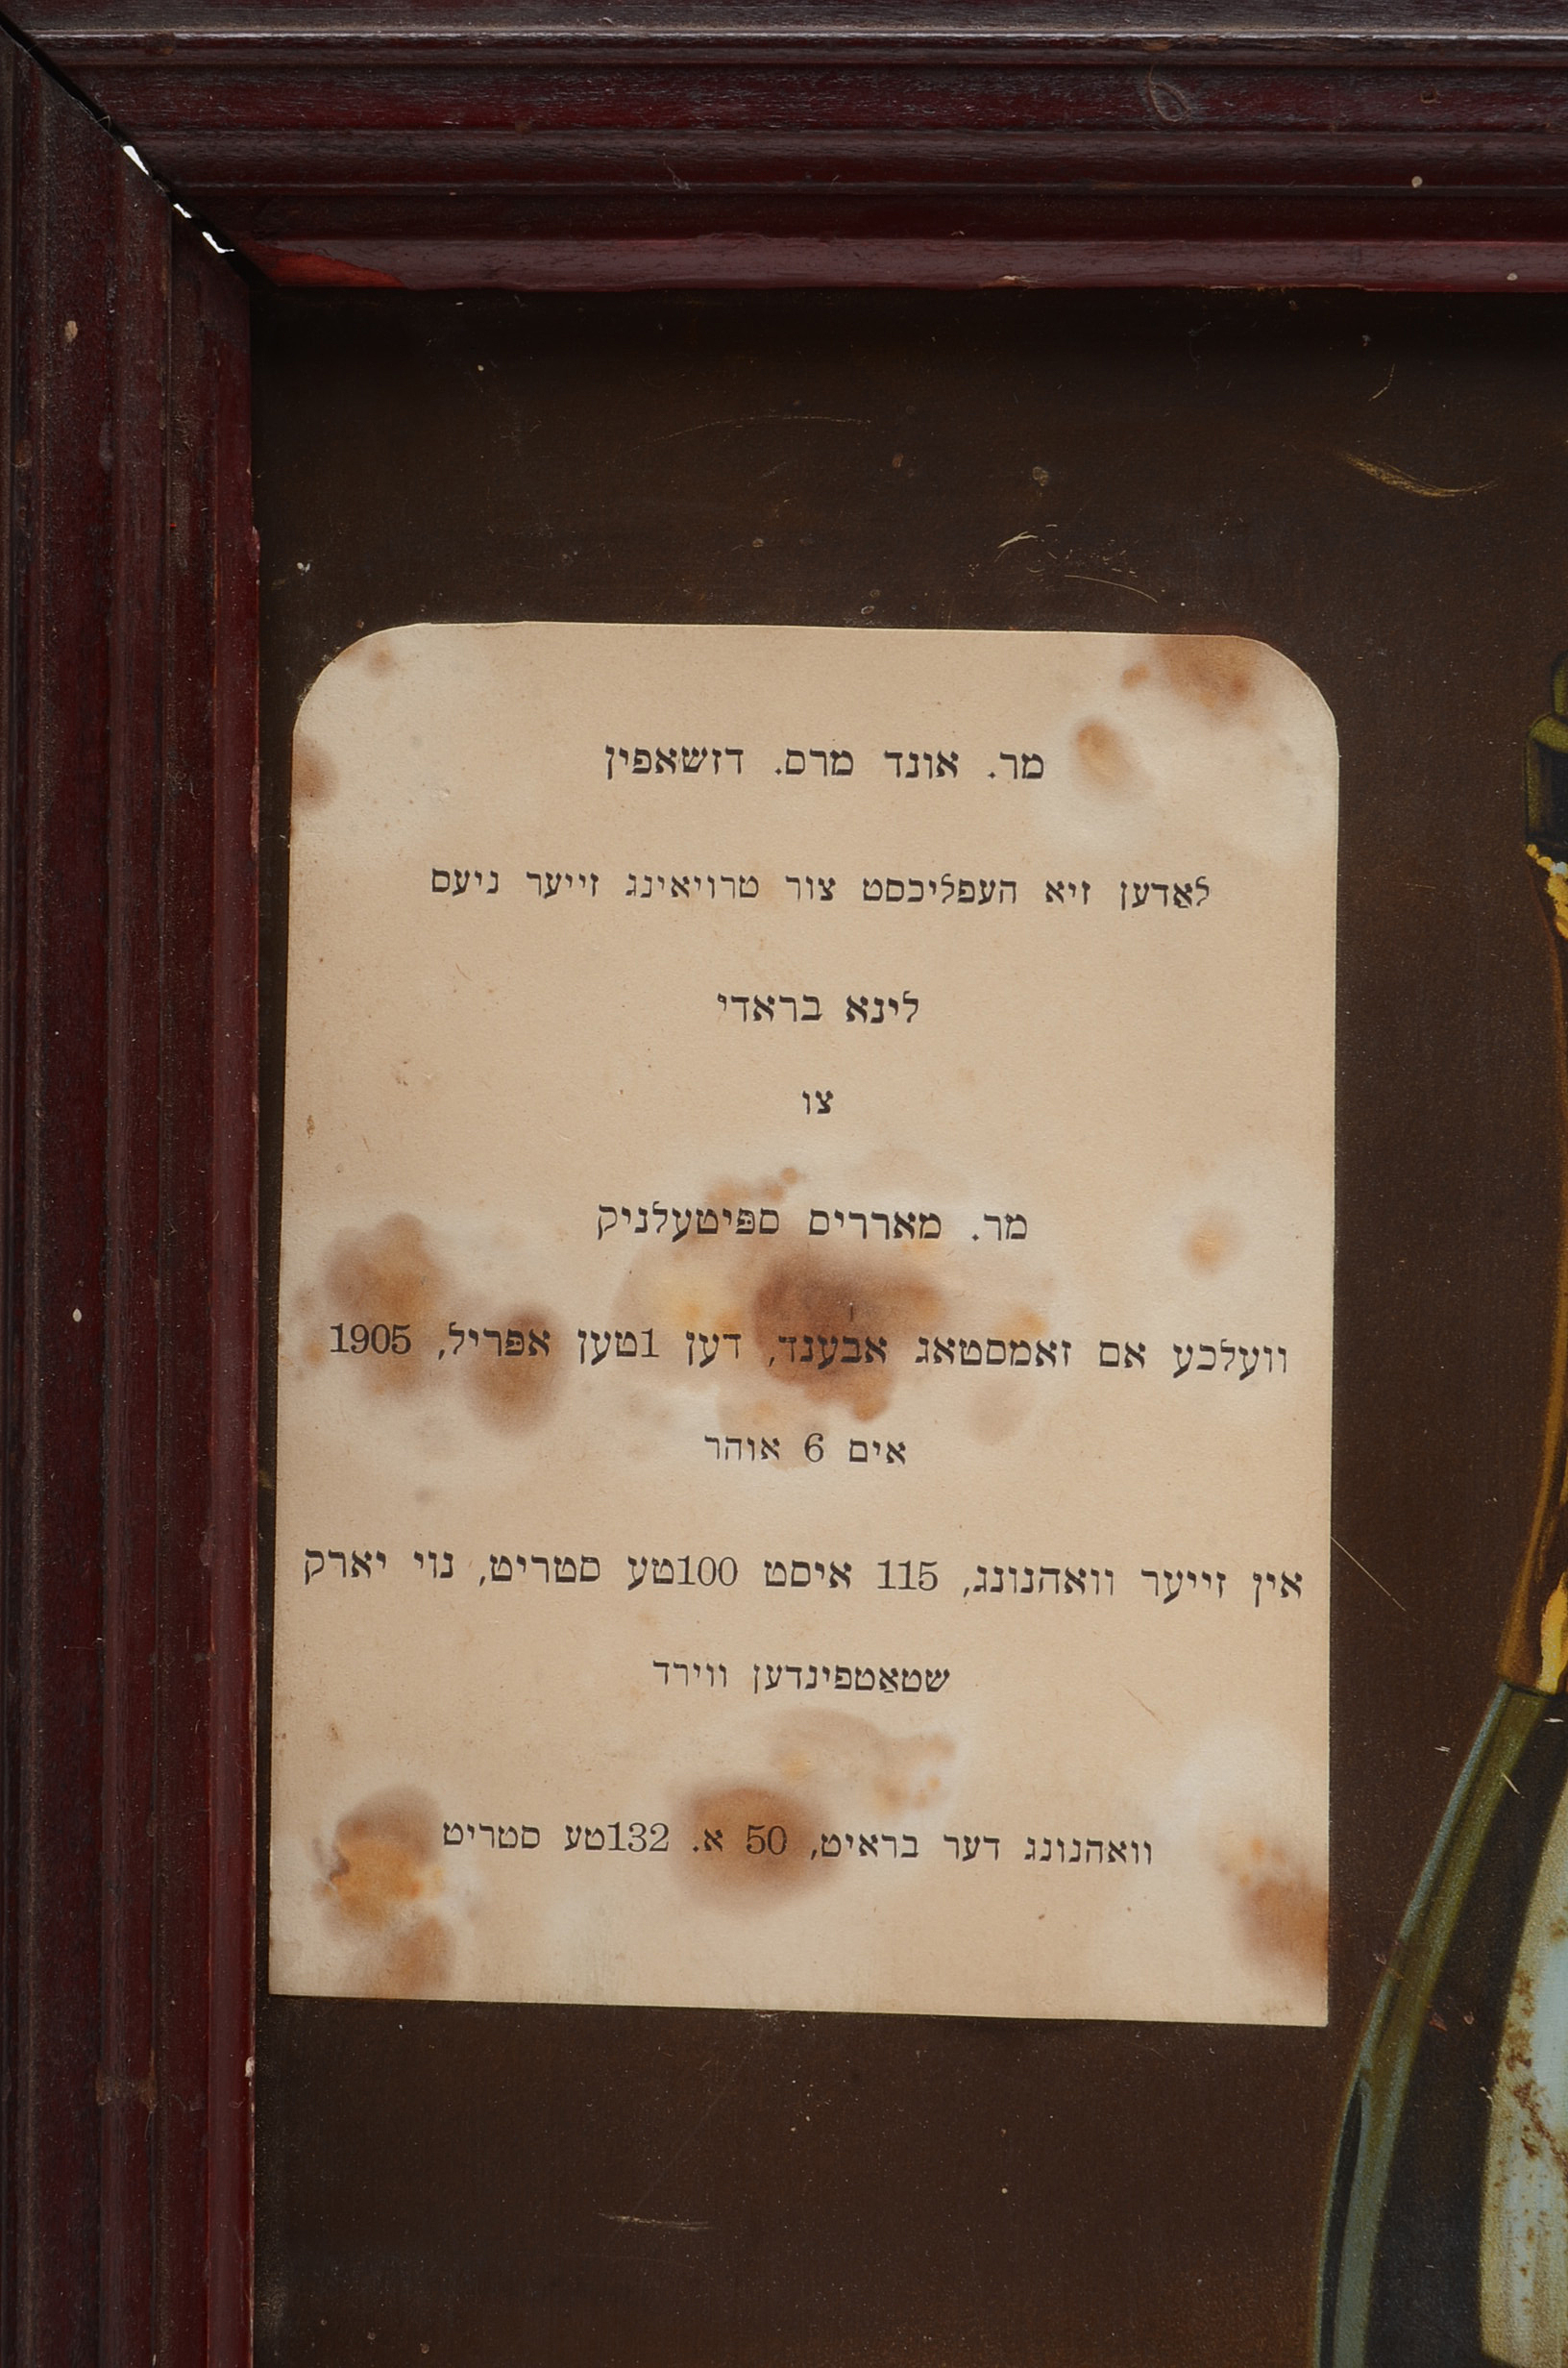 מר. אונד מרס. דזשאפין
לאַדען זיא העפליכסט צור טרויאינג זייער ניעס
לינא בראדי
צו
מר. מאררים ספּיטעלניק
וועלכע אם זאמסטאג אבענד, דען 1טען אפּריל, 1905
אים 6 אוהר
אין זייער וואהנונג, 115 איסט 100טע סטריט, נוי יארק
שטאַטפינדען ווירד
וואהנונג דער בראיט, 50 א. 132טע סטריט